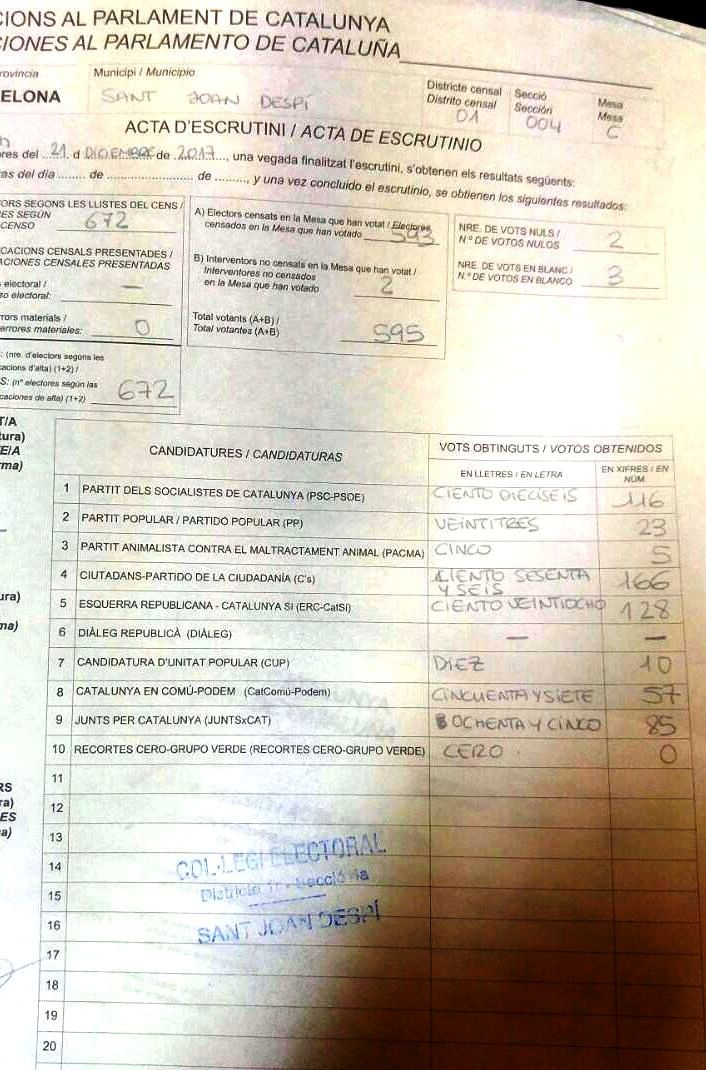 CIONS AL PARLAMENT DE CATALUNYA
CIONES AL PARLAMENTO DE CATALUÑA
rovincia
ELONA
Municipi / Municipio
SANT JOAN DESPÍ
Districte censal
Distrito censal
01
Secció
Sección
004
Mesa
Mesa
C
ACTA D'ESCRUTINI / ACTA DE ESCRUTINIO
ores del 21 d DICIEMBRE de 2017, una vegada finalitzat l'escrutini, s'obtenen els resultats següents:
as del día ........ de ........................ de ........., y una vez concluido el escrutinio, se obtienen los siguientes resultados:
ORS SEGONS LES LLISTES DEL CENS /
ES SEGÚN
CENSO 672
CACIONS CENSALS PRESENTADES /
ACIONES CENSALES PRESENTADAS
electoral /
so electoral: —
rrors materials /
errores materiales: 0
: (nre. d'electors segons les
cacions d'alta) (1+2) /
S: (nº electores según las
caciones de alta) (1+2) 672
A) Electors censats en la Mesa que han votat / Electores
censados en la Mesa que han votado 593
B) Interventors no censats en la Mesa que han votat /
Interventores no censados
en la Mesa que han votado 2
Total votants (A+B) /
Total votantes (A+B) 595
NRE. DE VOTS NULS /
N.º DE VOTOS NULOS 2
NRE. DE VOTS EN BLANC /
N.º DE VOTOS EN BLANCO 3
T/A
tura)
E/A
rma)
ura)
ma)
RS
ra)
ES
a)
CANDIDATURES / CANDIDATURAS
VOTS OBTINGUTS / VOTOS OBTENIDOS
EN LLETRES / EN LETRA
EN XIFRES / EN
NÚM
1 PARTIT DELS SOCIALISTES DE CATALUNYA (PSC-PSOE) CIENTO DIECISEIS 116
2 PARTIT POPULAR / PARTIDO POPULAR (PP) VEINTITRES 23
3 PARTIT ANIMALISTA CONTRA EL MALTRACTAMENT ANIMAL (PACMA) CINCO 5
4 CIUTADANS-PARTIDO DE LA CIUDADANÍA (C's) CIENTO SESENTA Y SEIS 166
5 ESQUERRA REPUBLICANA - CATALUNYA SI (ERC-CatSí) CIENTO VEINTIOCHO 128
6 DIÀLEG REPUBLICÀ (DIÀLEG) — —
7 CANDIDATURA D'UNITAT POPULAR (CUP) DIEZ 10
8 CATALUNYA EN COMÚ-PODEM (CatComú-Podem) CINCUENTA Y SIETE 57
9 JUNTS PER CATALUNYA (JUNTSxCAT) OCHENTA Y CINCO 85
10 RECORTES CERO-GRUPO VERDE (RECORTES CERO-GRUPO VERDE) CERO 0
11
12
13
14
15
16
17
18
19
20
COL·LEGI ELECTORAL
Districte Secció
SANT JOAN DESPÍ